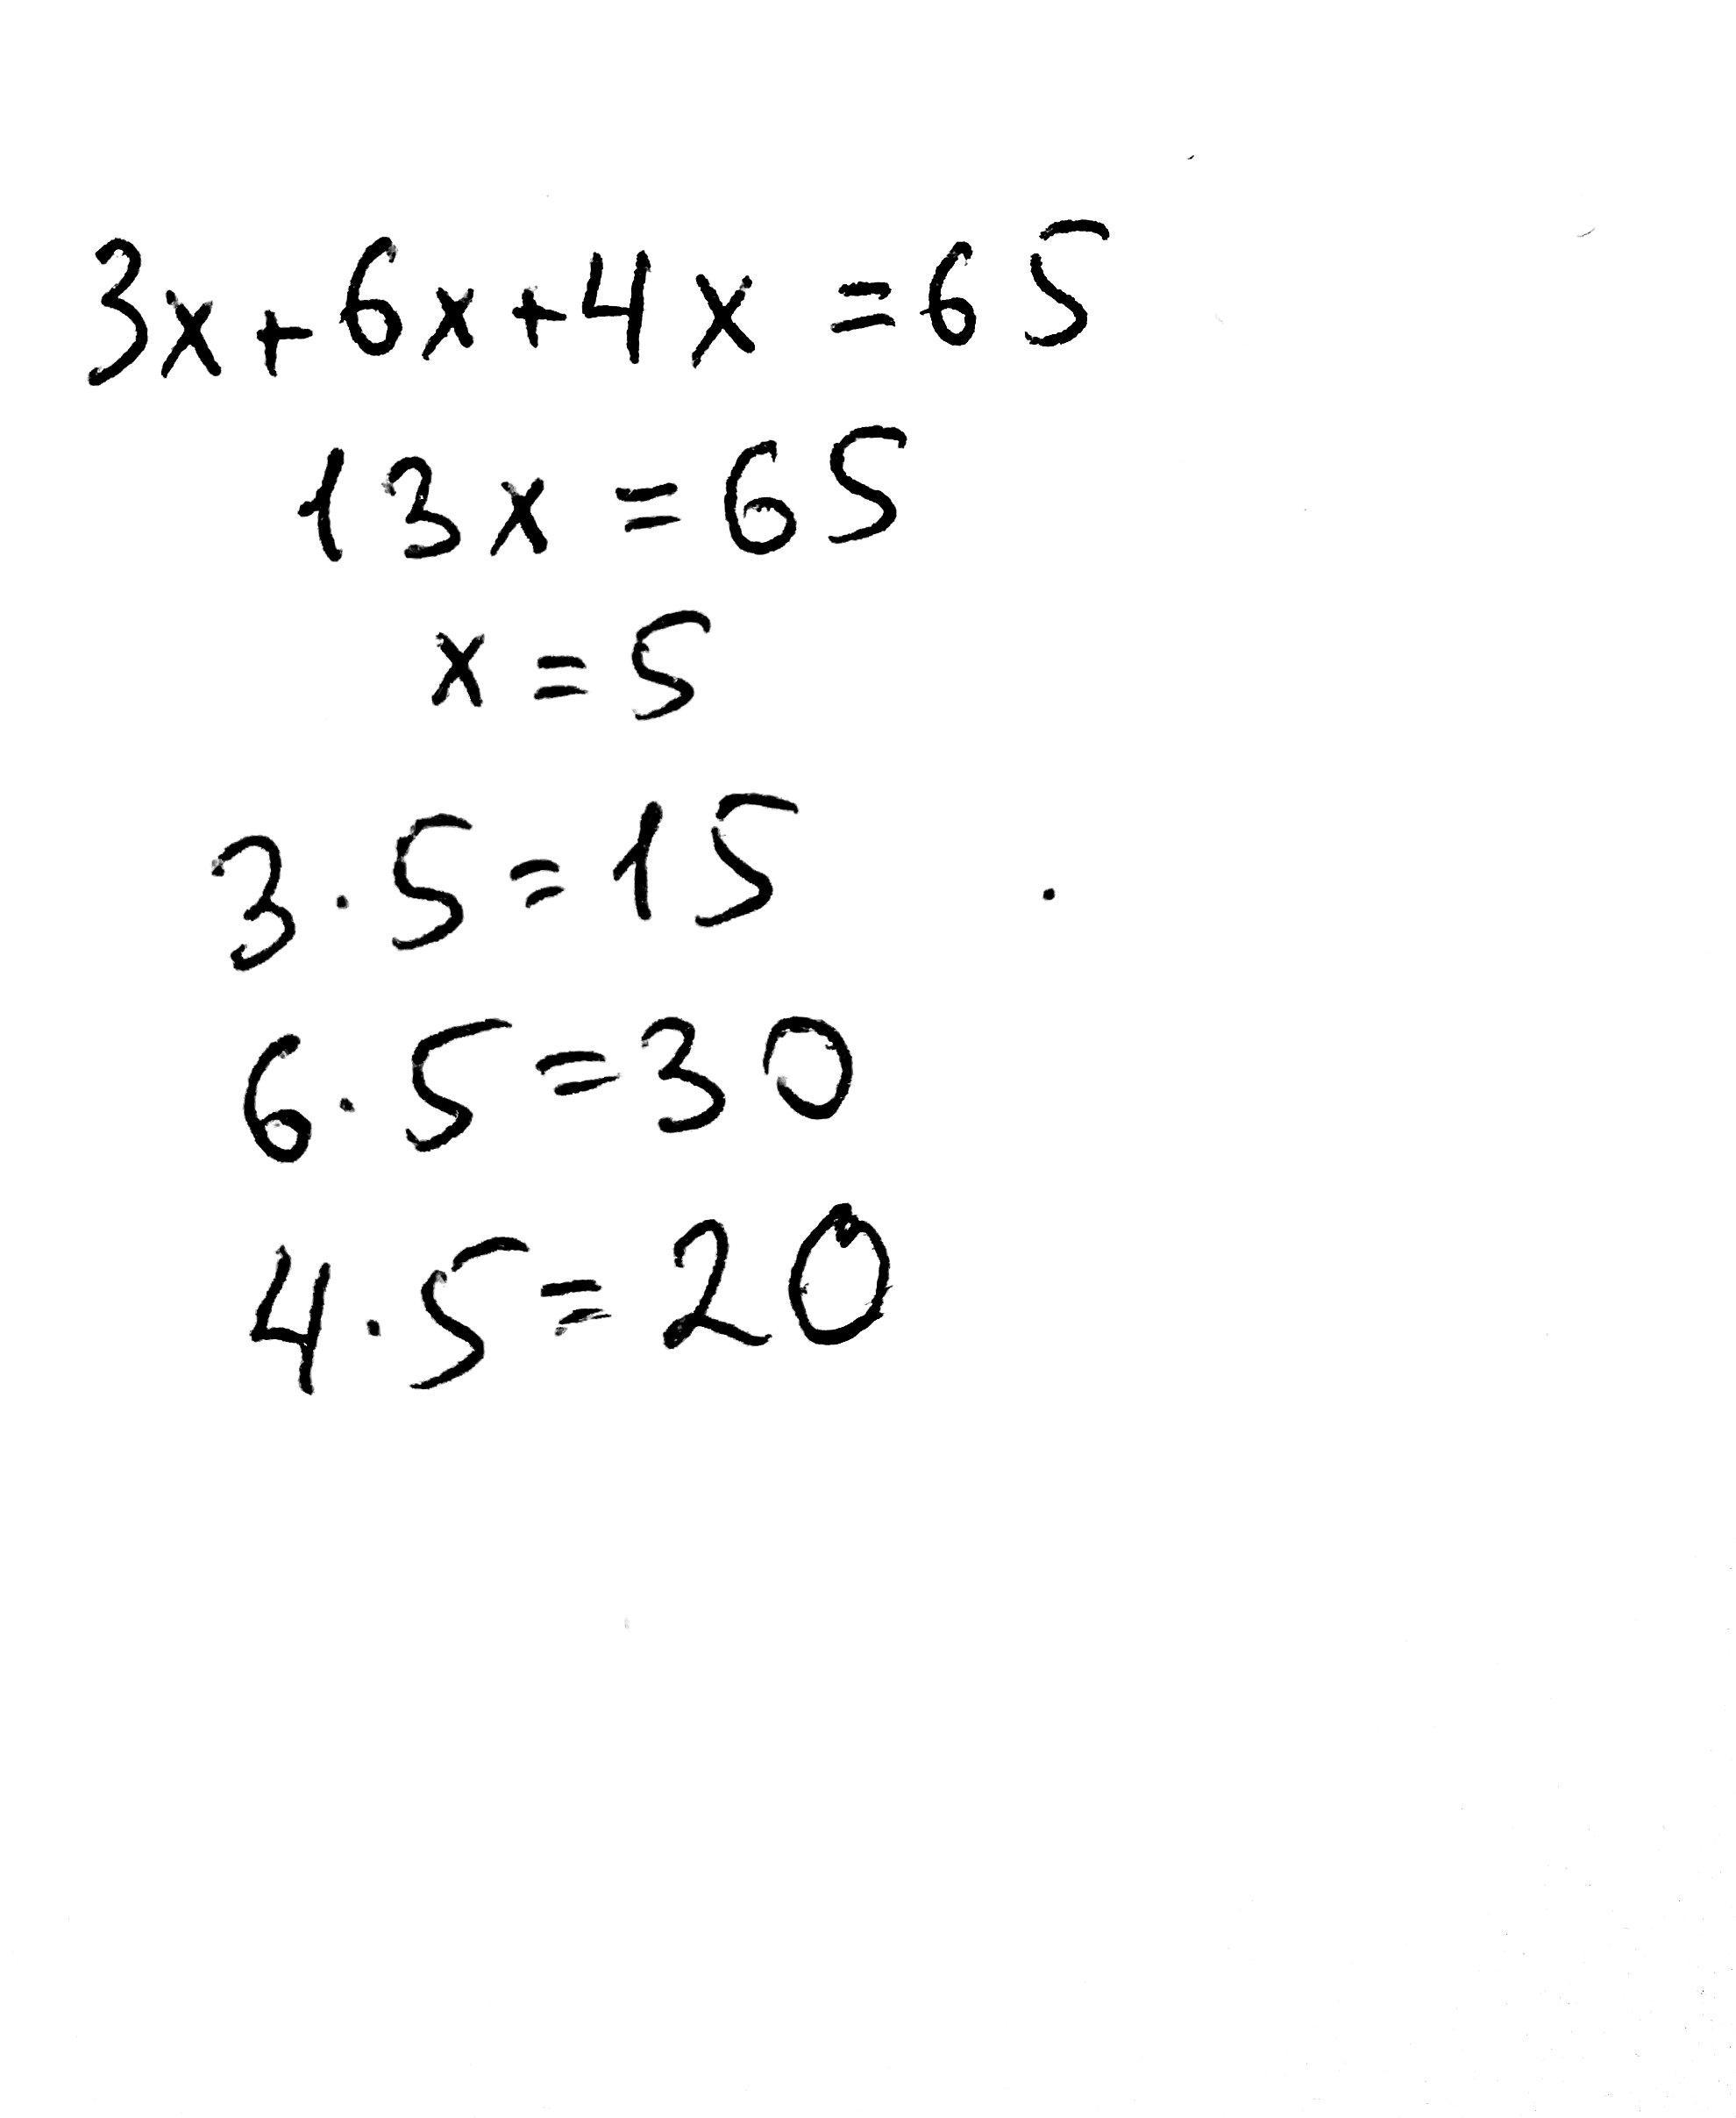 3x+6x+4x=65
13x=65
x=5
3·5=15
6·5=30
4·5=20